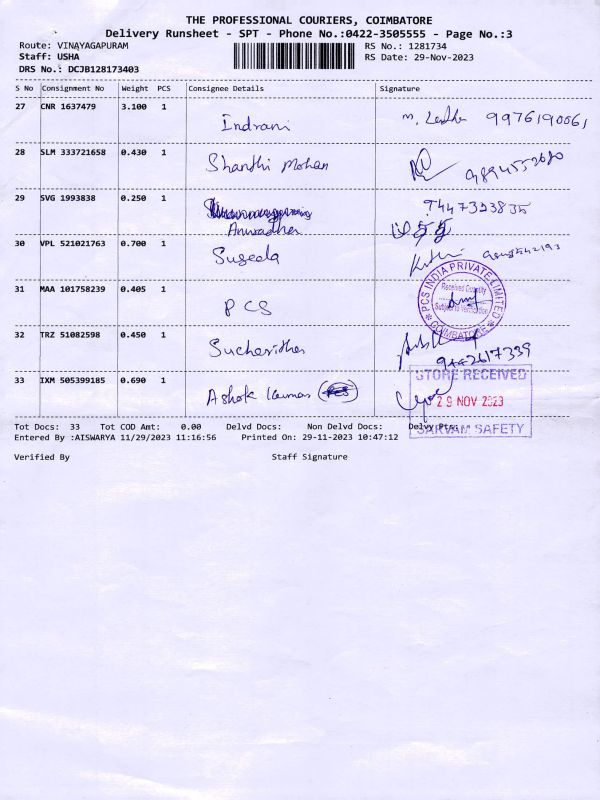 THE PROFESSIONAL COURIERS, COIMBATORE
Delivery Runsheet - SPT - Phone No.:0422-3505555 - Page No.:3
Route: VINAYAGAPURAM
RS No.: 1281734
Staff: USHA
RS Date: 29-Nov-2023
DRS No.: DCJB128173403
S No Consignment No Weight PCS Consignee Details Signature
27 CNR 1637479 3.100 1 Indrani 9976190061
28 SLM 333721658 0.430 1 Shandhi Mohan
29 SVG 1993838 0.250 1
Anuradha
30 VPL 521021763 0.700 1 Sugeeda
31 MAA 101758239 0.405 1 PCS
PCS INDIA PRIVATE LIMITED
Received Quantity
Subject to Verification
COIMBATORE
32 TRZ 51082598 0.450 1 Sucharitha
33 IXM 505399185 0.690 1 Ashok Kumar
STORE RECEIVED
29 NOV 2023
SARVAM SAFETY
Tot Docs: 33 Tot COD Amt: 0.00 Delvd Docs: Non Delvd Docs: Delvy Pts:
Entered By :AISWARYA 11/29/2023 11:16:56 Printed On: 29-11-2023 10:47:12
Verified By Staff Signature